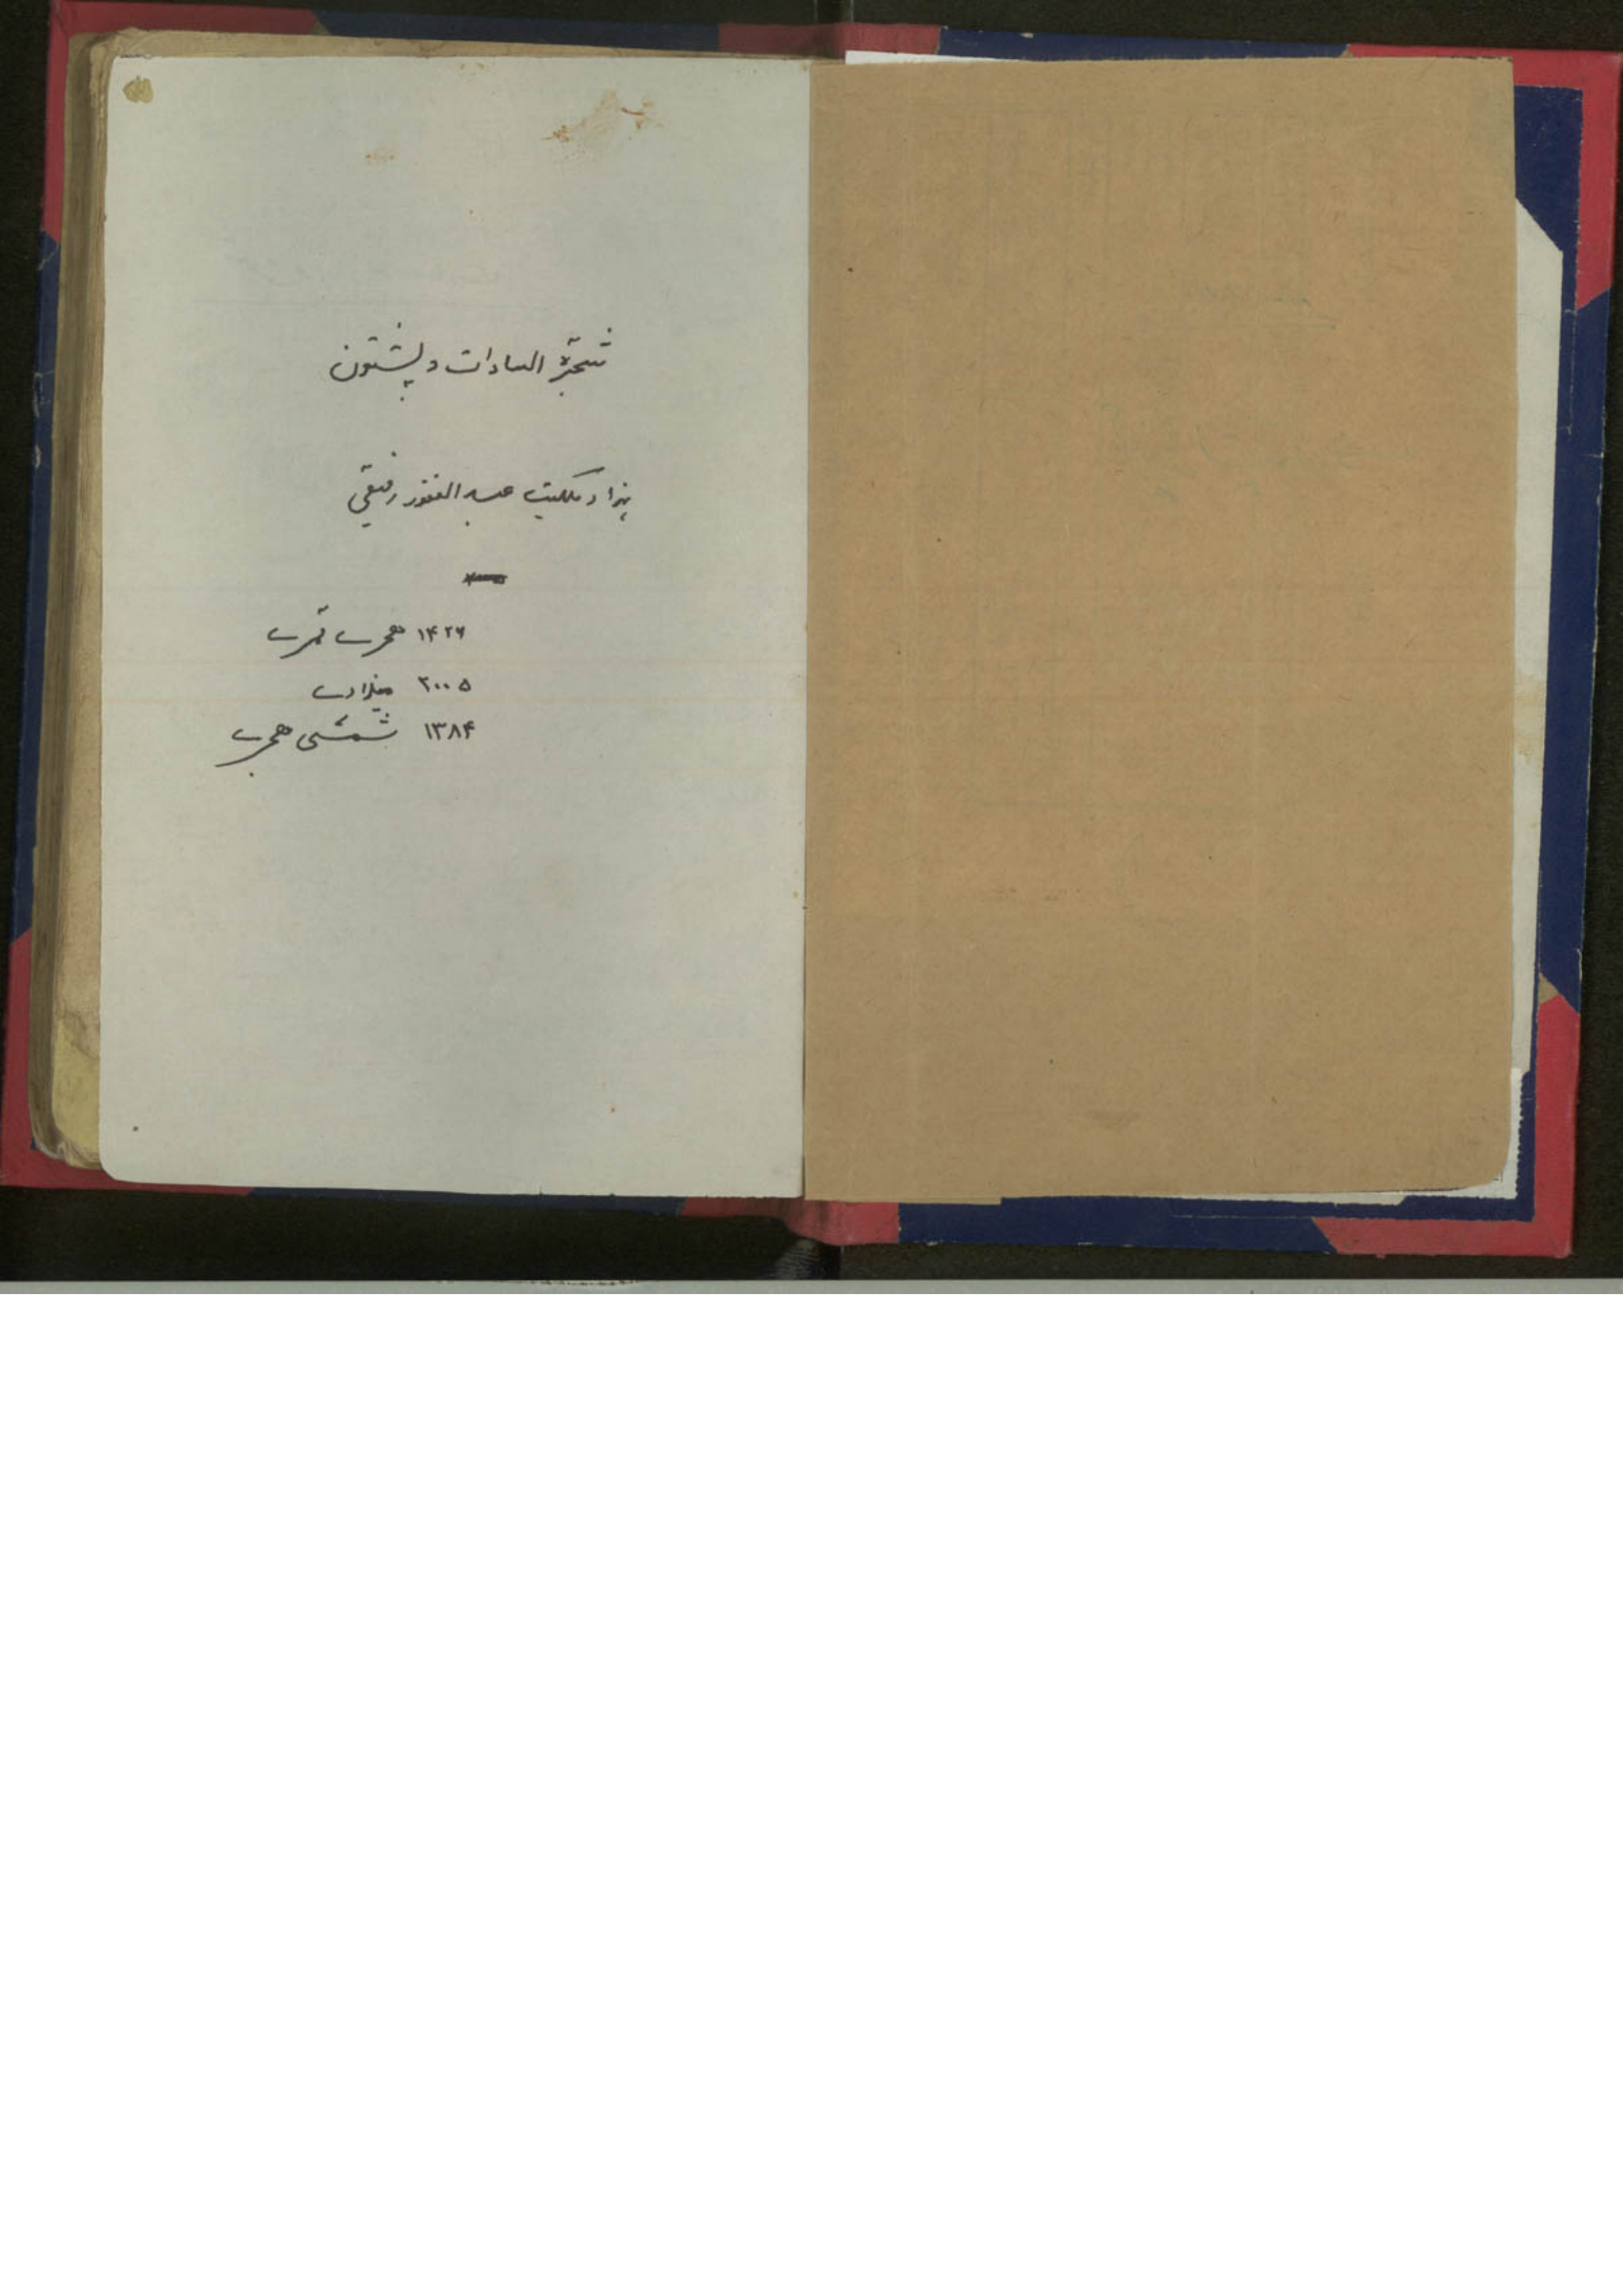 شجرة السادات و پښتون
عبدالغفور رفیقي
۱۴۲۶ هجری قمری
۲۰۰۵ میلادی
۱۳۸۴ شمسی هجری